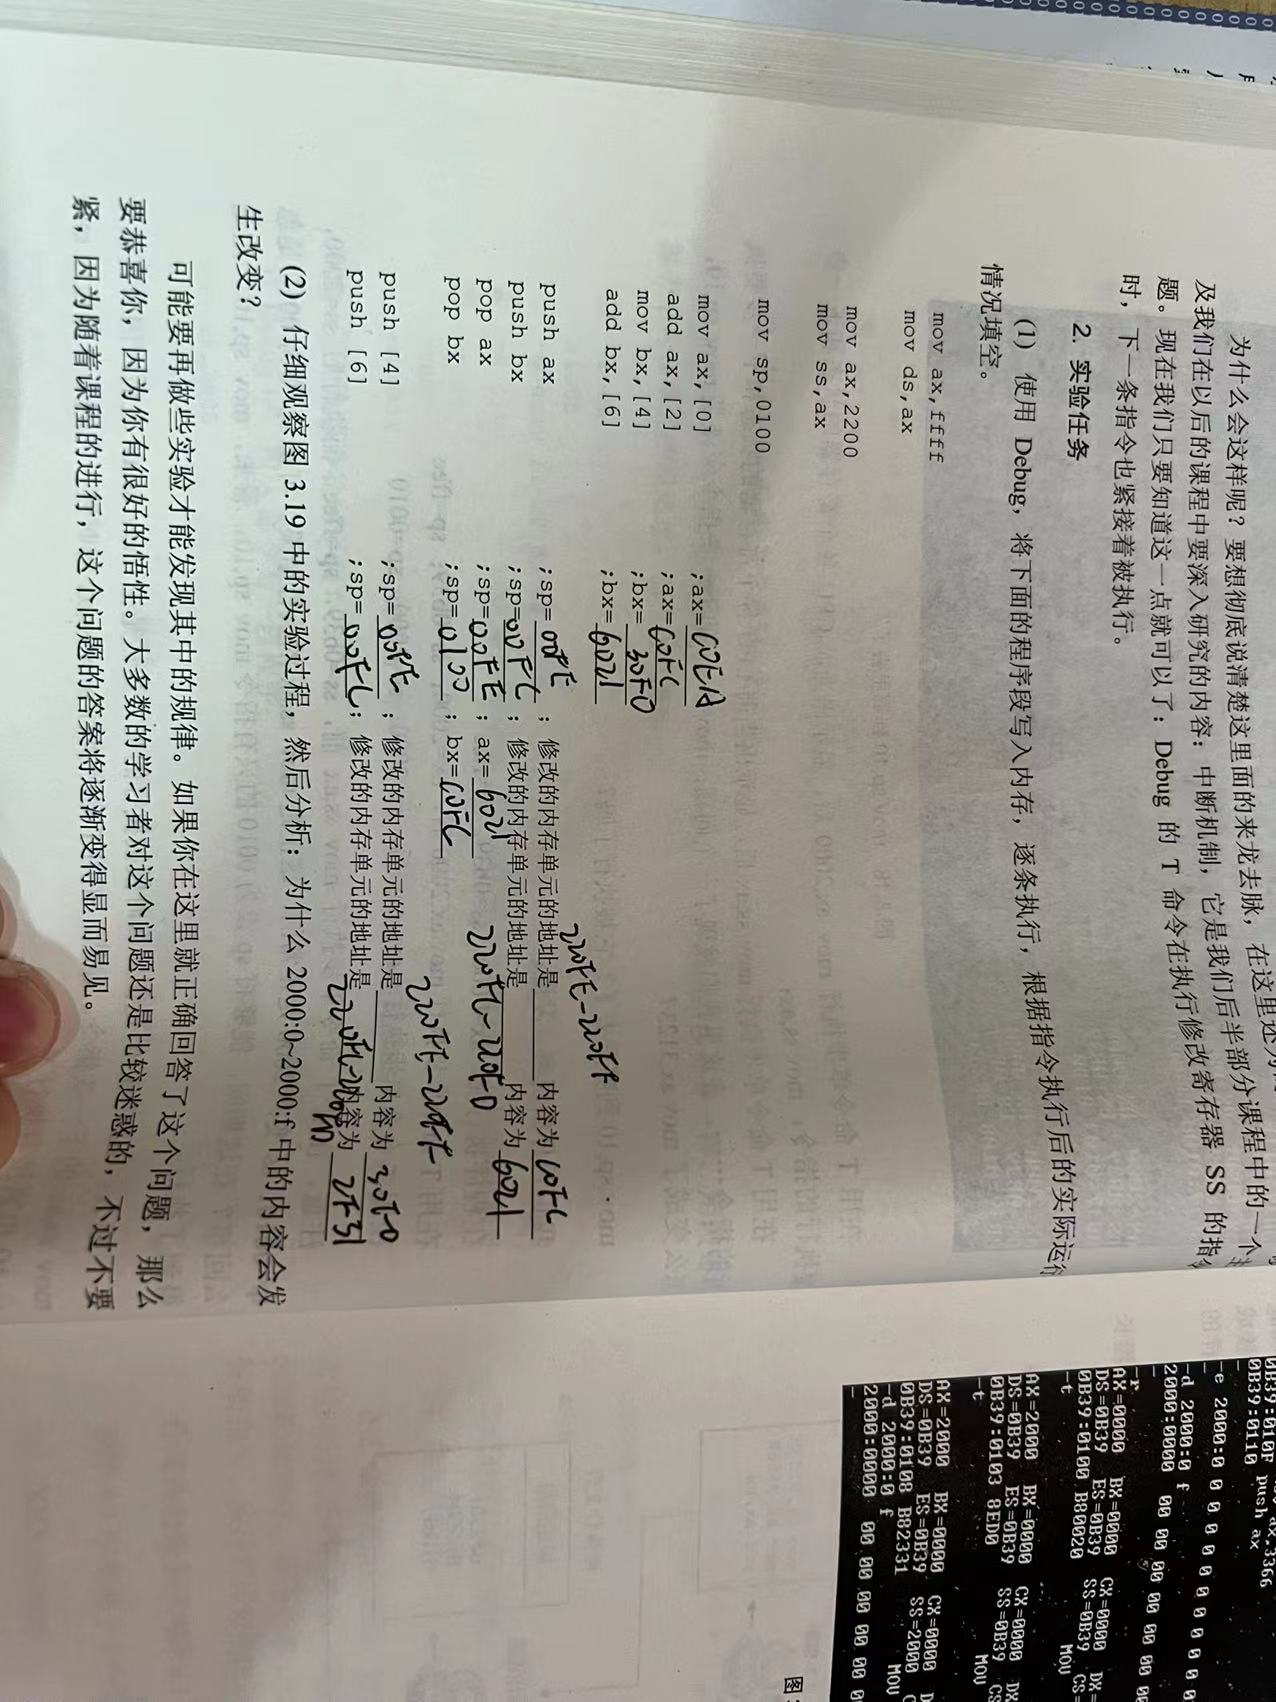 为什么会这样呢？要想彻底说清楚这里面的来龙去脉，在这里还为
及我们在以后的课程中要深入研究的内容：中断机制，它是我们后半部分课程中的一个
题。现在我们只要知道这一点就可以了：Debug 的 T 命令在执行修改寄存器 SS 的指
时，下一条指令也紧接着被执行。
2. 实验任务
(1) 使用 Debug，将下面的程序段写入内存，逐条执行，根据指令执行后的实际运行
情况填空。
mov ax,ffff
mov ds,ax
mov ax,2200
mov ss,ax
mov sp,0100
mov ax,[0] ;ax=C0EA
add ax,[2] ;ax=C0FC
mov bx,[4] ;bx=30F0
add bx,[6] ;bx=6021
push ax ;sp=00FE ；修改的内存单元的地址是 220FE-220FF 内容为 C0FC
push bx ;sp=00FC ；修改的内存单元的地址是 220FC-220FD 内容为 6021
pop ax ;sp=00FE ；ax=6021
pop bx ;sp=0100 ；bx=C0FC
push [4] ;sp=00FE ；修改的内存单元的地址是 220FE-220FF 内容为 30F0
push [6] ;sp=00FC ；修改的内存单元的地址是 220FC-220FD 内容为 2F31
(2) 仔细观察图 3.19 中的实验过程，然后分析：为什么 2000:0~2000:f 中的内容会发
生改变？
可能要再做些实验才能发现其中的规律。如果你在这里就正确回答了这个问题，那么
要恭喜你，因为你有很好的悟性。大多数的学习者对这个问题还是比较迷惑的，不过不要
紧，因为随着课程的进行，这个问题的答案将逐渐变得显而易见。
0B39:010F push ax
0B39:0110
-e 2000:0 0 0 0 0 0 0 0 0 0 0 0
-d 2000:0 f
2000:0000 00 00 00 00 00 00 00
-r
AX=0000 BX=0000 CX=0000 DX=
DS=0B39 ES=0B39 SS=0B39 CS=
0B39:0100 B80020 MOV
-t
AX=2000 BX=0000 CX=0000 DX
DS=0B39 ES=0B39 SS=0B39 CS
0B39:0103 8ED0 MOV
-t
AX=2000 BX=0000 CX=0000 D
DS=0B39 ES=0B39 SS=2000 C
0B39:0108 B82331 MOV
-d 2000:0 f
2000:0000 00 00 00 00 00 0
图